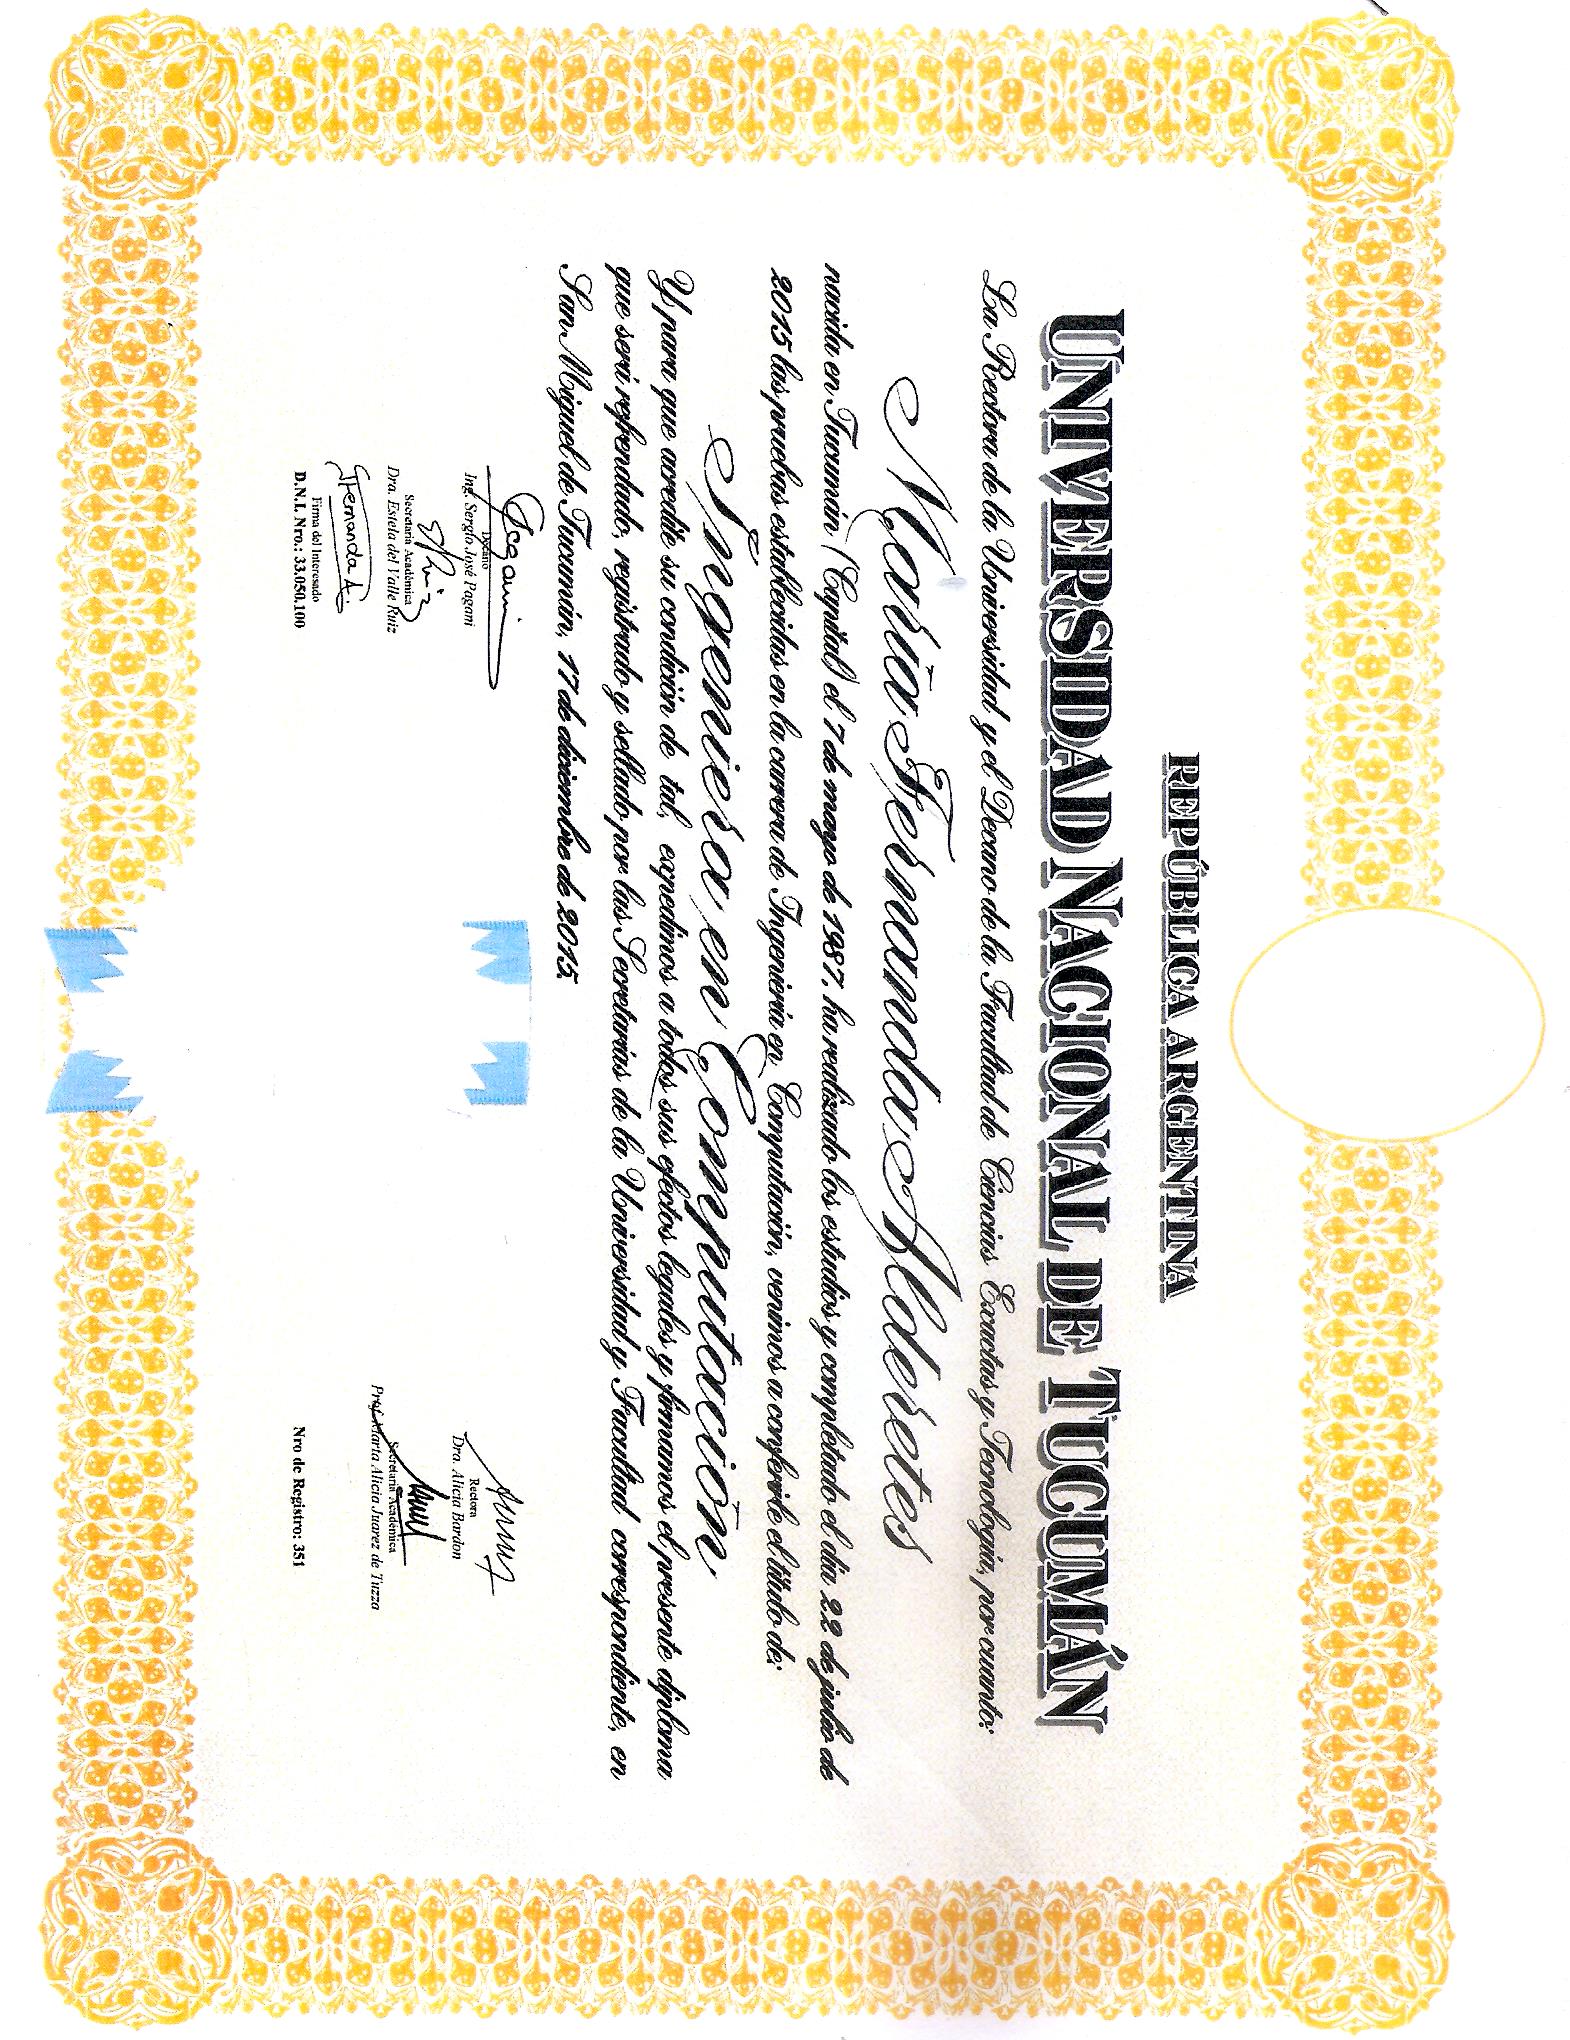 REPÚBLICA ARGENTINA
UNIVERSIDAD NACIONAL DE TUCUMÁN
La Rectora de la Universidad y el Decano de la Facultad de Ciencias Exactas y Tecnología, por cuanto:
María Fernanda Alderetes
nacida en Tucumán (Capital) el 7 de mayo de 1987, ha realizado los estudios y completado el día 22 de julio de
2015 las pruebas establecidas en la carrera de Ingeniería en Computación, venimos a conferirle el título de:
Ingeniera en Computación
Y para que acredite su condición de tal, expedimos a todos sus efectos legales y firmamos el presente diploma
que será refrendado, registrado y sellado por las Secretarías de la Universidad y Facultad correspondiente, en
San Miguel de Tucumán, 17 de diciembre de 2015.
Decano
Ing. Sergio José Pagani
Secretaria Académica
Dra. Estela del Valle Ruiz
Fernanda A.
Firma del Interesado
D.N.I. Nro.: 33.050.100
Rectora
Dra. Alicia Bardon
Secretaria Académica
Prof. Marta Alicia Juarez de Tuzza
Nro de Registro: 351